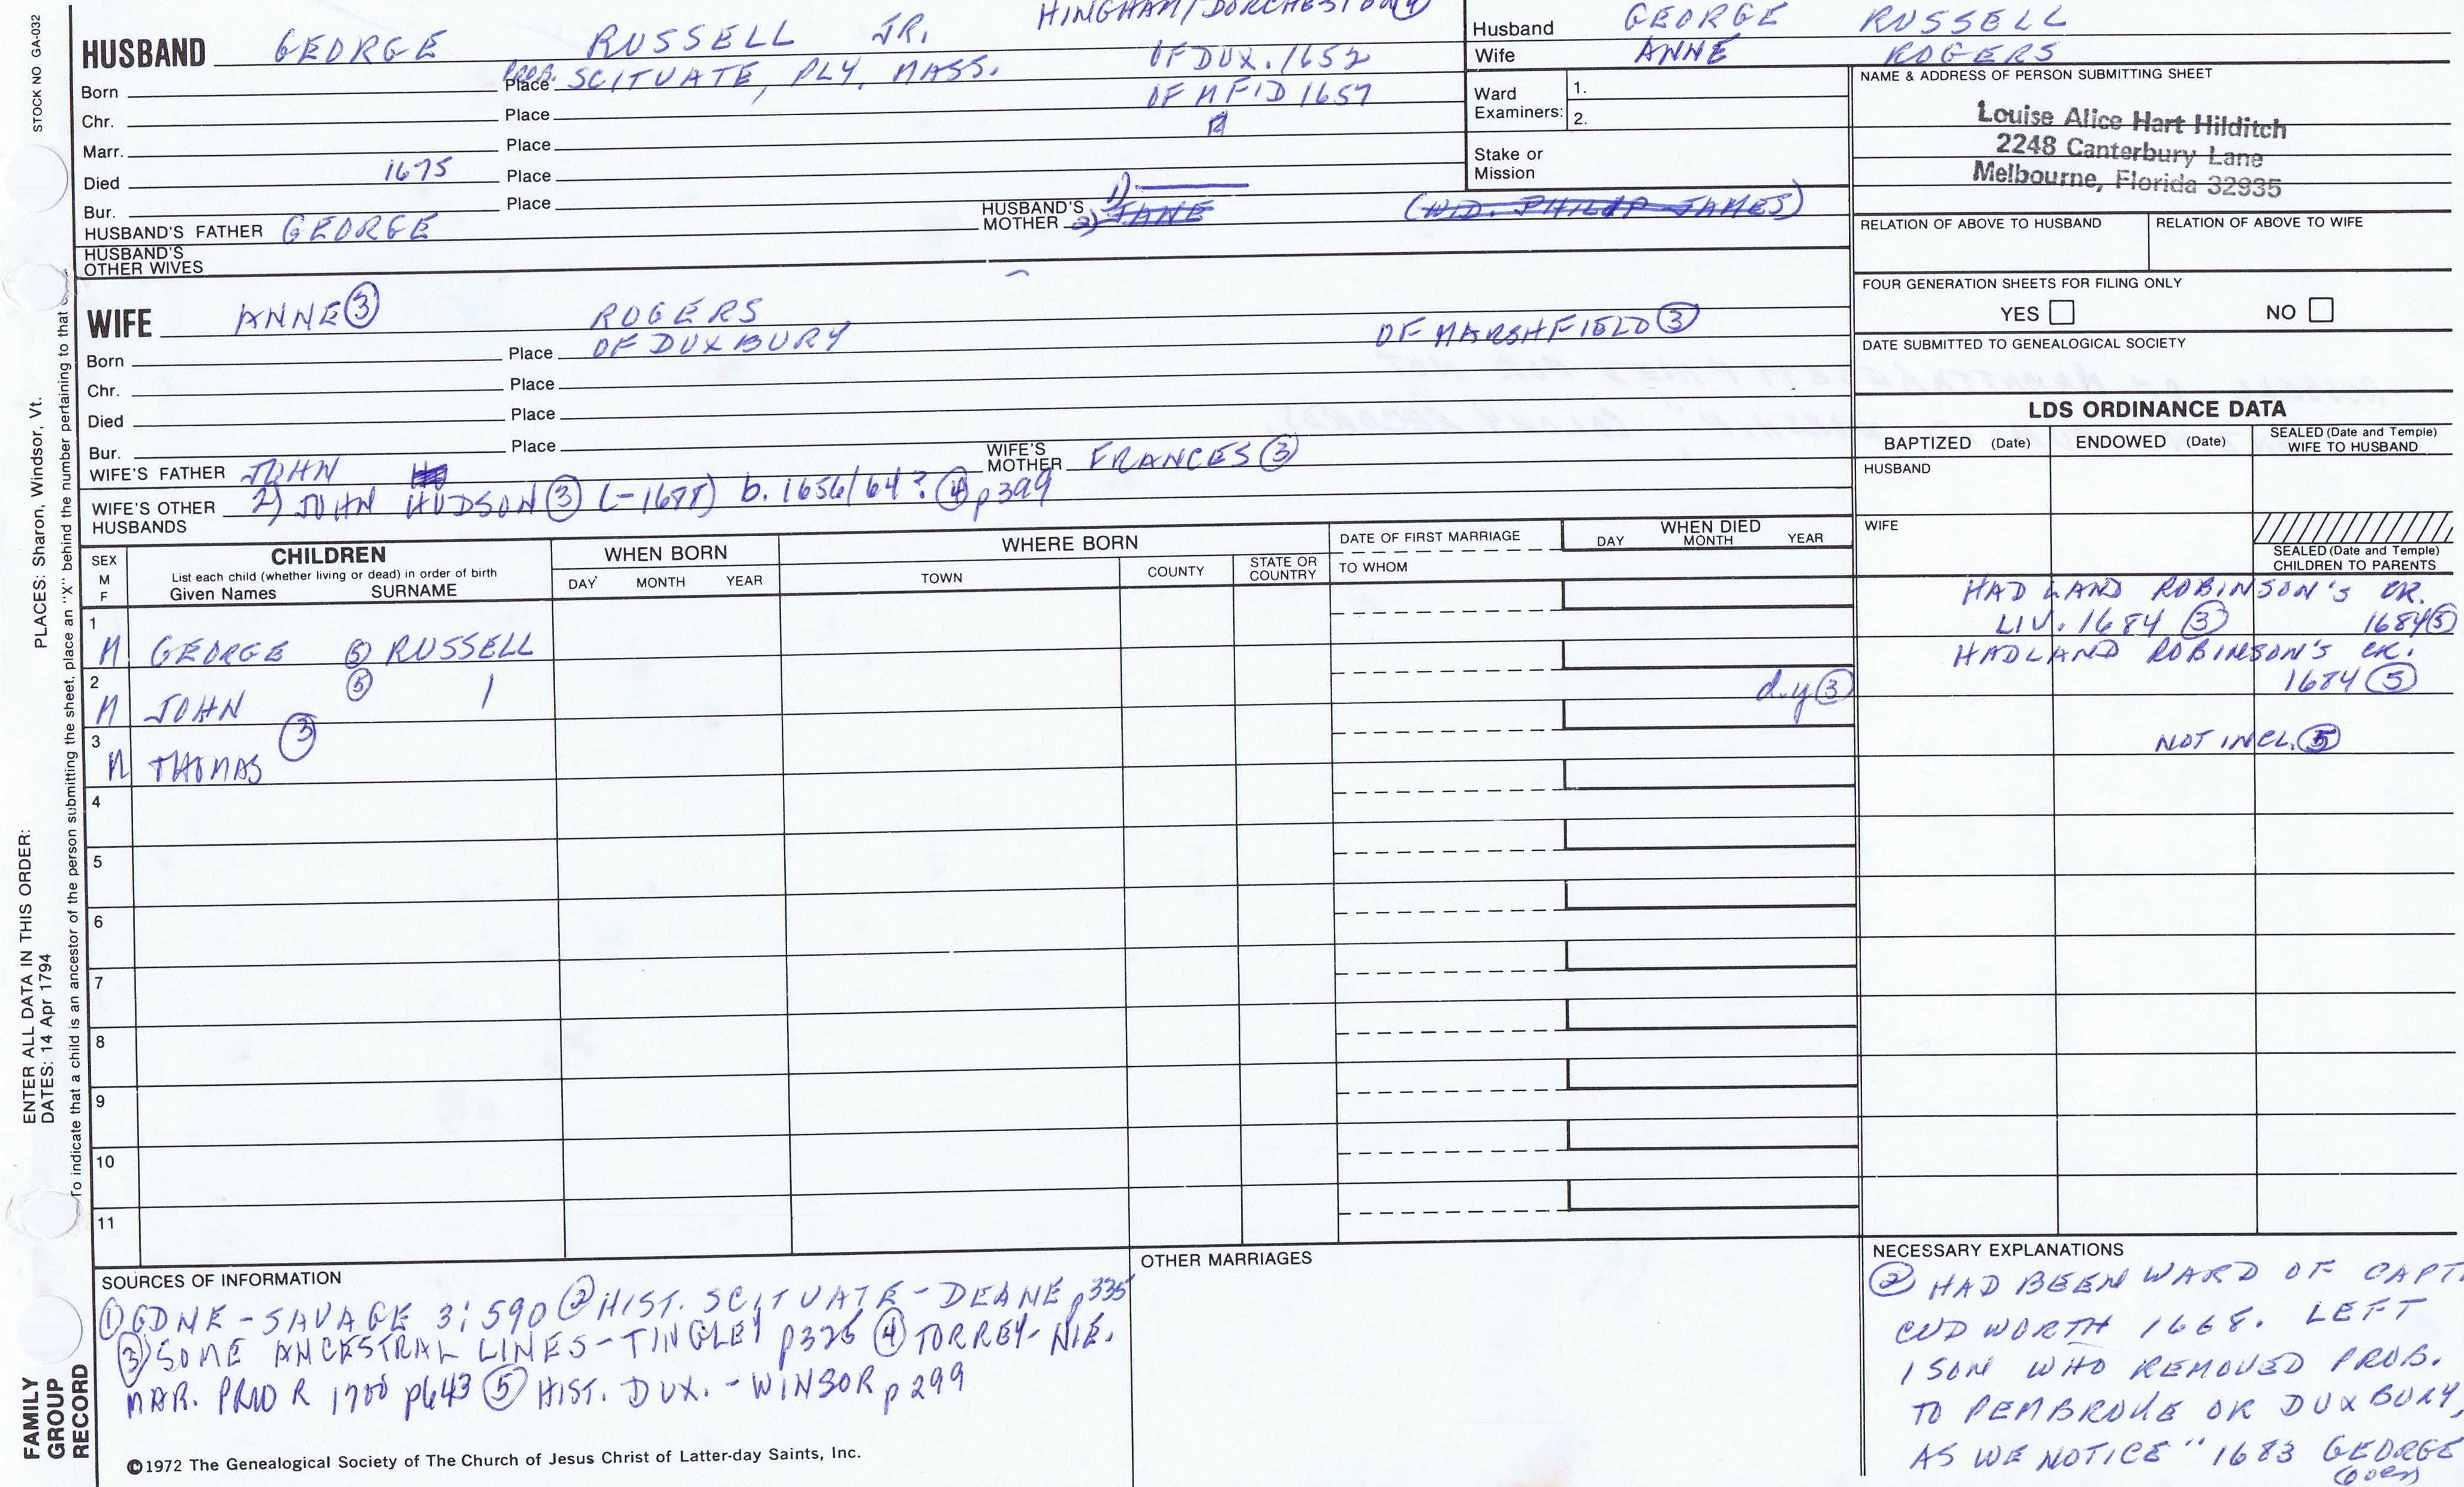 STOCK NO GA-032
HINGHAM/DORCHEST
HUSBAND GEORGE RUSSELL JR.
Born Place PROB. SCITUATE, PLY, MASS. OF DUX. 1652
Chr. Place OF MFID 1657
Marr. Place
Died 1675 Place
Bur. Place
HUSBAND'S FATHER GEORGE
HUSBAND'S MOTHER 1) 2) JANE (WID. PHILIP JAMES)
HUSBAND'S OTHER WIVES
Husband GEORGE RUSSELL
Wife ANNE ROGERS
Ward Examiners: 1.
2.
Stake or Mission
NAME & ADDRESS OF PERSON SUBMITTING SHEET
Louise Alice Hart Hilditch
2248 Canterbury Lane
Melbourne, Florida 32935
RELATION OF ABOVE TO HUSBAND RELATION OF ABOVE TO WIFE
FOUR GENERATION SHEETS FOR FILING ONLY
YES NO
DATE SUBMITTED TO GENEALOGICAL SOCIETY
WIFE ANNE ③ ROGERS
Born Place OF DUXBURY OF MARSHFIELD ③
Chr. Place
Died Place
Bur. Place
WIFE'S FATHER JOHN WIFE'S MOTHER FRANCES ③
WIFE'S OTHER HUSBANDS 2) JOHN HUDSON ③ (-1688) b. 1656/64? ④ p399
LDS ORDINANCE DATA
BAPTIZED (Date) ENDOWED (Date) SEALED (Date and Temple) WIFE TO HUSBAND
HUSBAND
WIFE
SEALED (Date and Temple) CHILDREN TO PARENTS
SEX M F
CHILDREN
List each child (whether living or dead) in order of birth
Given Names SURNAME
WHEN BORN
DAY MONTH YEAR
WHERE BORN
TOWN COUNTY STATE OR COUNTRY
DATE OF FIRST MARRIAGE
TO WHOM
WHEN DIED
DAY MONTH YEAR
1 M GEORGE ⑤ RUSSELL HAD LAND ROBINSON'S CR.
LIV. 1684 ③ 1684 ⑤
2 M JOHN ⑤ d.y ③ HAD LAND ROBINSON'S CR.
1684 ⑤
3 M THOMAS ③ NOT INCL. ⑤
4
5
6
7
8
9
10
11
SOURCES OF INFORMATION
① GDNE - SAVAGE 3:590 ② HIST. SCITUATE - DEANE p335
③ SOME ANCESTRAL LINES - TINGLEY p326 ④ TORREY - N.E.
MAR. PRIOR 1700 p643 ⑤ HIST. DUX. - WINSOR p299
OTHER MARRIAGES
NECESSARY EXPLANATIONS
② HAD BEEN WARD OF CAPT.
CUDWORTH 1668. LEFT
1 SON WHO REMOVED PROB.
TO PEMBROKE OR DUXBURY,
AS WE NOTICE "1683 GEORGE
(over)
©1972 The Genealogical Society of The Church of Jesus Christ of Latter-day Saints, Inc.
FAMILY GROUP RECORD
ENTER ALL DATA IN THIS ORDER:
DATES: 14 Apr 1794
PLACES: Sharon, Windsor, Vt.
To indicate that a child is an ancestor of the person submitting the sheet, place an "X" behind the number pertaining to that